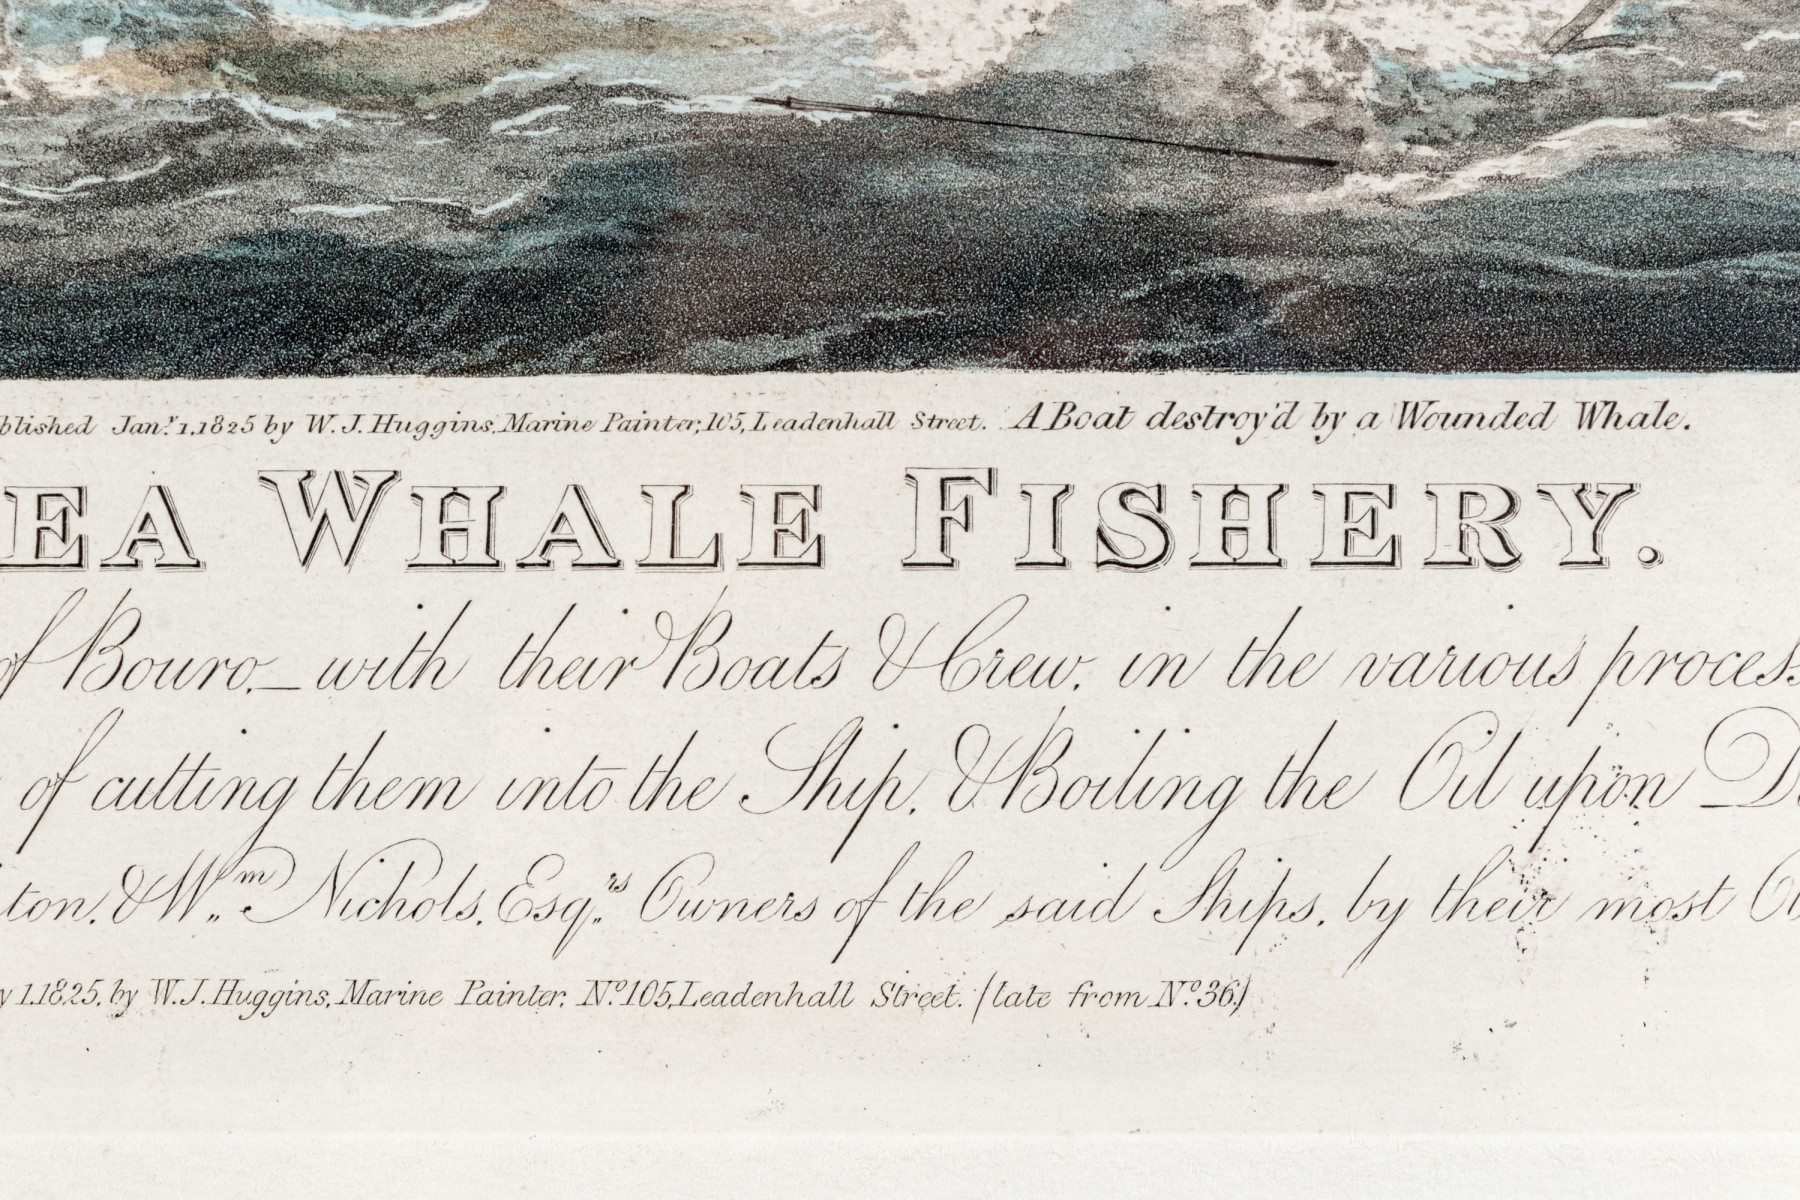 blished Jan.y 1, 1825 by W. J. Huggins, Marine Painter, 105, Leadenhall Street. A Boat destroy'd by a Wounded Whale.
EA WHALE FISHERY.
of Bouro, _ with their Boats & Crew, in the various process
of cutting them into the Ship, & Boiling the Oil upon D
ton, & W.m Nichols, Esq.rs Owners of the said Ships, by their most O
y 1, 1825, by W. J. Huggins, Marine Painter, No. 105, Leadenhall Street. (late from No. 36.)